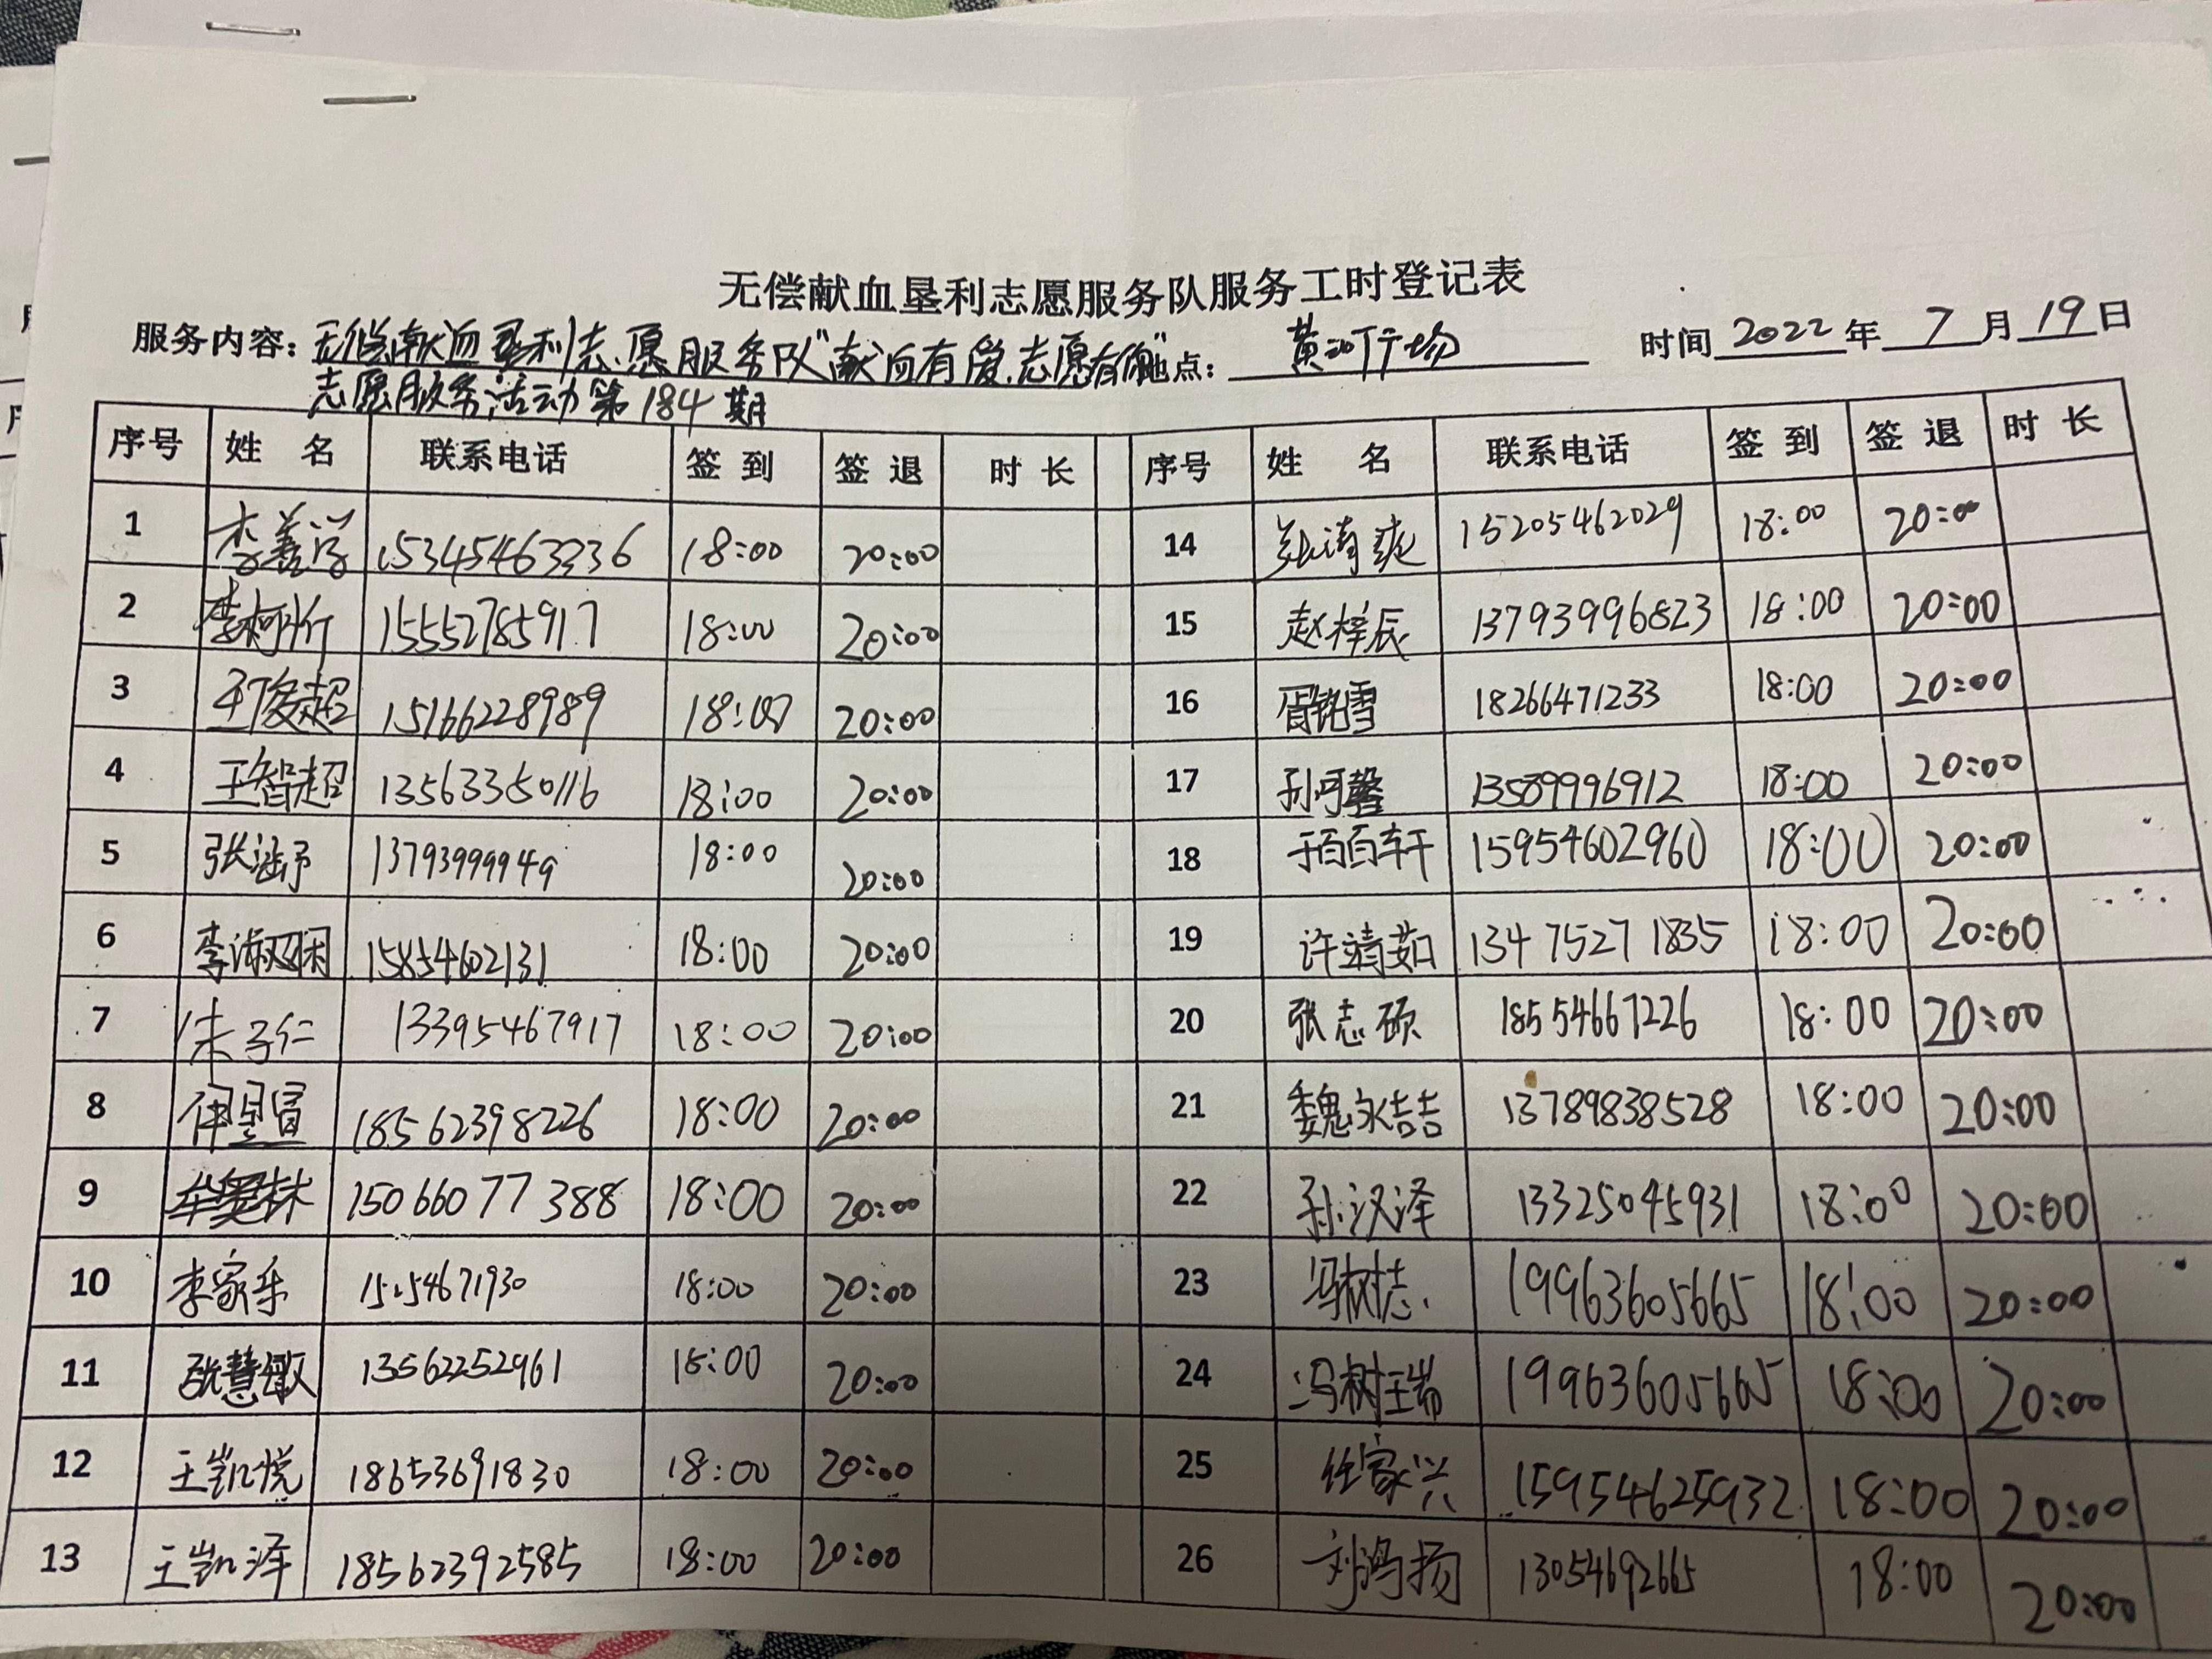 无偿献血垦利志愿服务队服务工时登记表
服务内容：无偿献血垦利志愿服务队"献血有爱.志愿有你"地点：黄河广场 时间 2022 年 7 月 19 日
志愿服务活动第184期
序号 姓 名 联系电话 签 到 签 退 时 长 序号 姓 名 联系电话 签 到 签 退 时 长
1 李善学 15345463336 18:00 20:00 14 张清爽 15205462029 18:00 20:00
2 15552785917 18:00 20:00 15 赵梓辰 13793996823 18:00 20:00
3 王俊超 15166228989 18:00 20:00 16 胥铭雪 18266471233 18:00 20:00
4 王智超 13563350116 18:00 20:00 17 孙可馨 13589996912 18:00 20:00
5 张涵予 13793999949 18:00 20:00 18 于百百轩 15954602960 18:00 20:00
6 李淑娴 15854602131 18:00 20:00 19 许靖茹 13475271835 18:00 20:00
7 朱子仁 13395467917 18:00 20:00 20 张志硕 18554667226 18:00 20:00
8 18562398226 18:00 20:00 21 魏永喆 13789838528 18:00 20:00
9 牟奕林 15066077388 18:00 20:00 22 孙汉泽 13325045931 18:00 20:00
10 李家乐 18:00 20:00 23 冯树志 19963605665 18:00 20:00
11 张慧敏 13562252961 18:00 20:00 24 冯树瑞 19963605665 18:00 20:00
12 王凯悦 18653691830 18:00 20:00 25 任家兴 15954625932 18:00 20:00
13 王凯泽 18562392585 18:00 20:00 26 刘鸿扬 13054692665 18:00 20:00